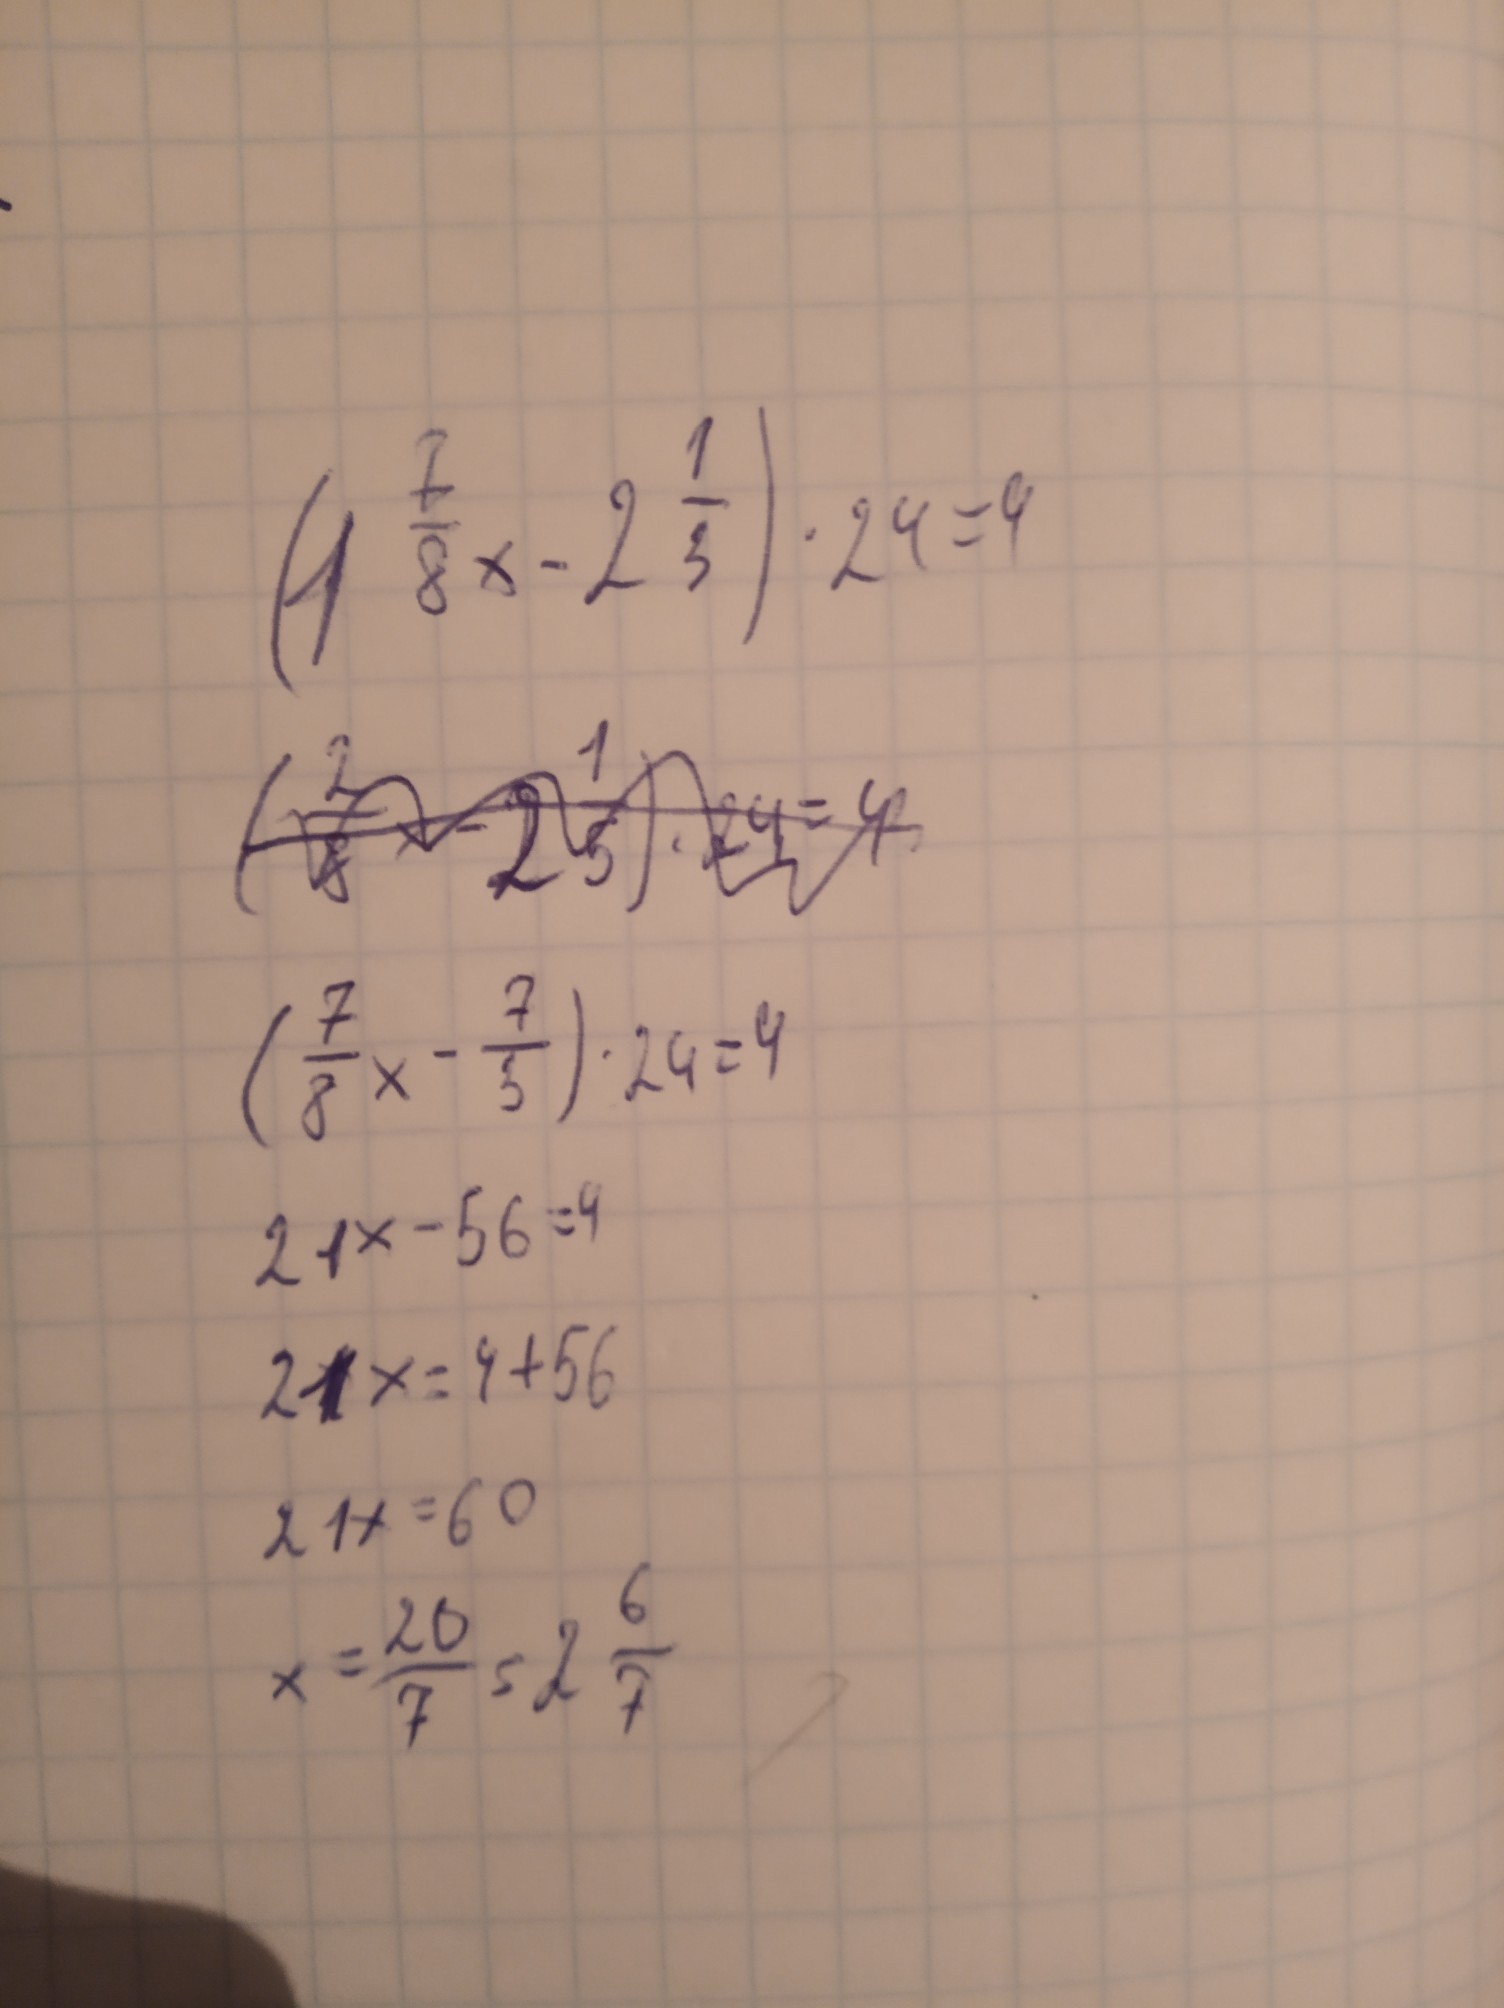 (1 7/8 x - 2 1/3) · 24 = 4
(7/8 x - 7/3) · 24 = 4
21x - 56 = 4
21x = 4 + 56
21x = 60
x = 20/7 = 2 6/7